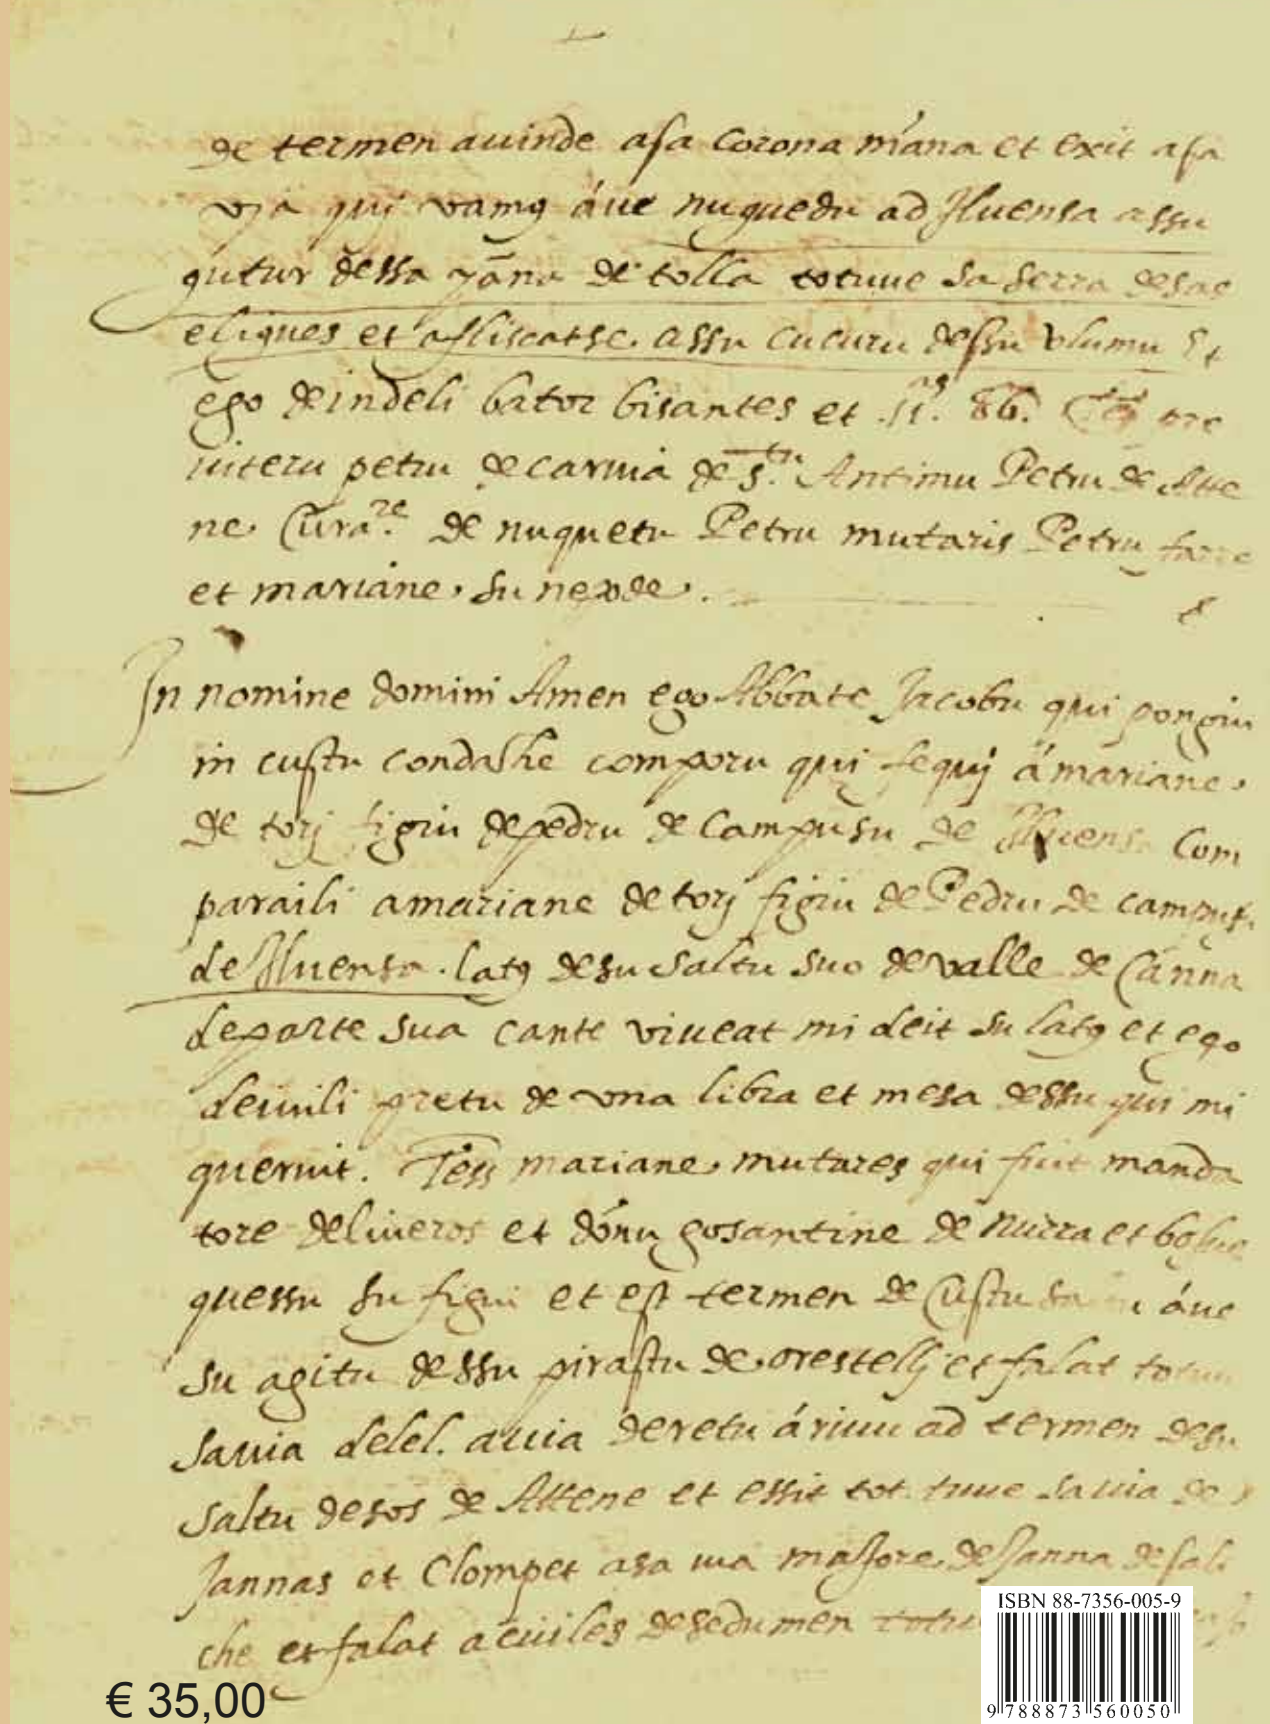 de termen auinde asa corona m'ana et exit asa
via qui vamꝯ áue nuquedu ad Jluensa assu
gutur dessa yāna de tolla totuue sa serra desas
eliques et afliscatsc. assu cucuru dessu vlumu Et
ego deindeli bator bisantes et pre
uiteru petru de caruia de s.tu Antimu Petru de Atte
ne. Cura.re de nuquetu Petru mutaris Petru
et mariane. su nepode.
In nomine domini Amen ego Abbate Jacobu qui pongiu
in custu condashe comporu qui fequj á mariane.
de torj figiu de pedru de Campusu de Jluensa Com
paraili amariane de torj figiu de Pedru de campus.
de Jluensa. latꝯ desu saltu suo de valle de Canna
departe sua cante viueat mi deit su latꝯ et ego
deiuili pretu de vna libra et mesa dessu qui mi
queruit. Tess mariane. mutares qui fuit manda
tore deliueros et dónu gosantine de Nurra et
quessu su figiu et est termen de Custu áue
su agitu dessu pirastu de. orestellj et falat
sauia delel. auia deretu áriuu ad termen desu
saltu desos de Attene et essit tot. tuue sauia de
Jannas et Clompet asa uia majore. de Janna de sali
che et falat acuiles de sedumen
ISBN 88-7356-005-9
9 788873 560050
€ 35,00